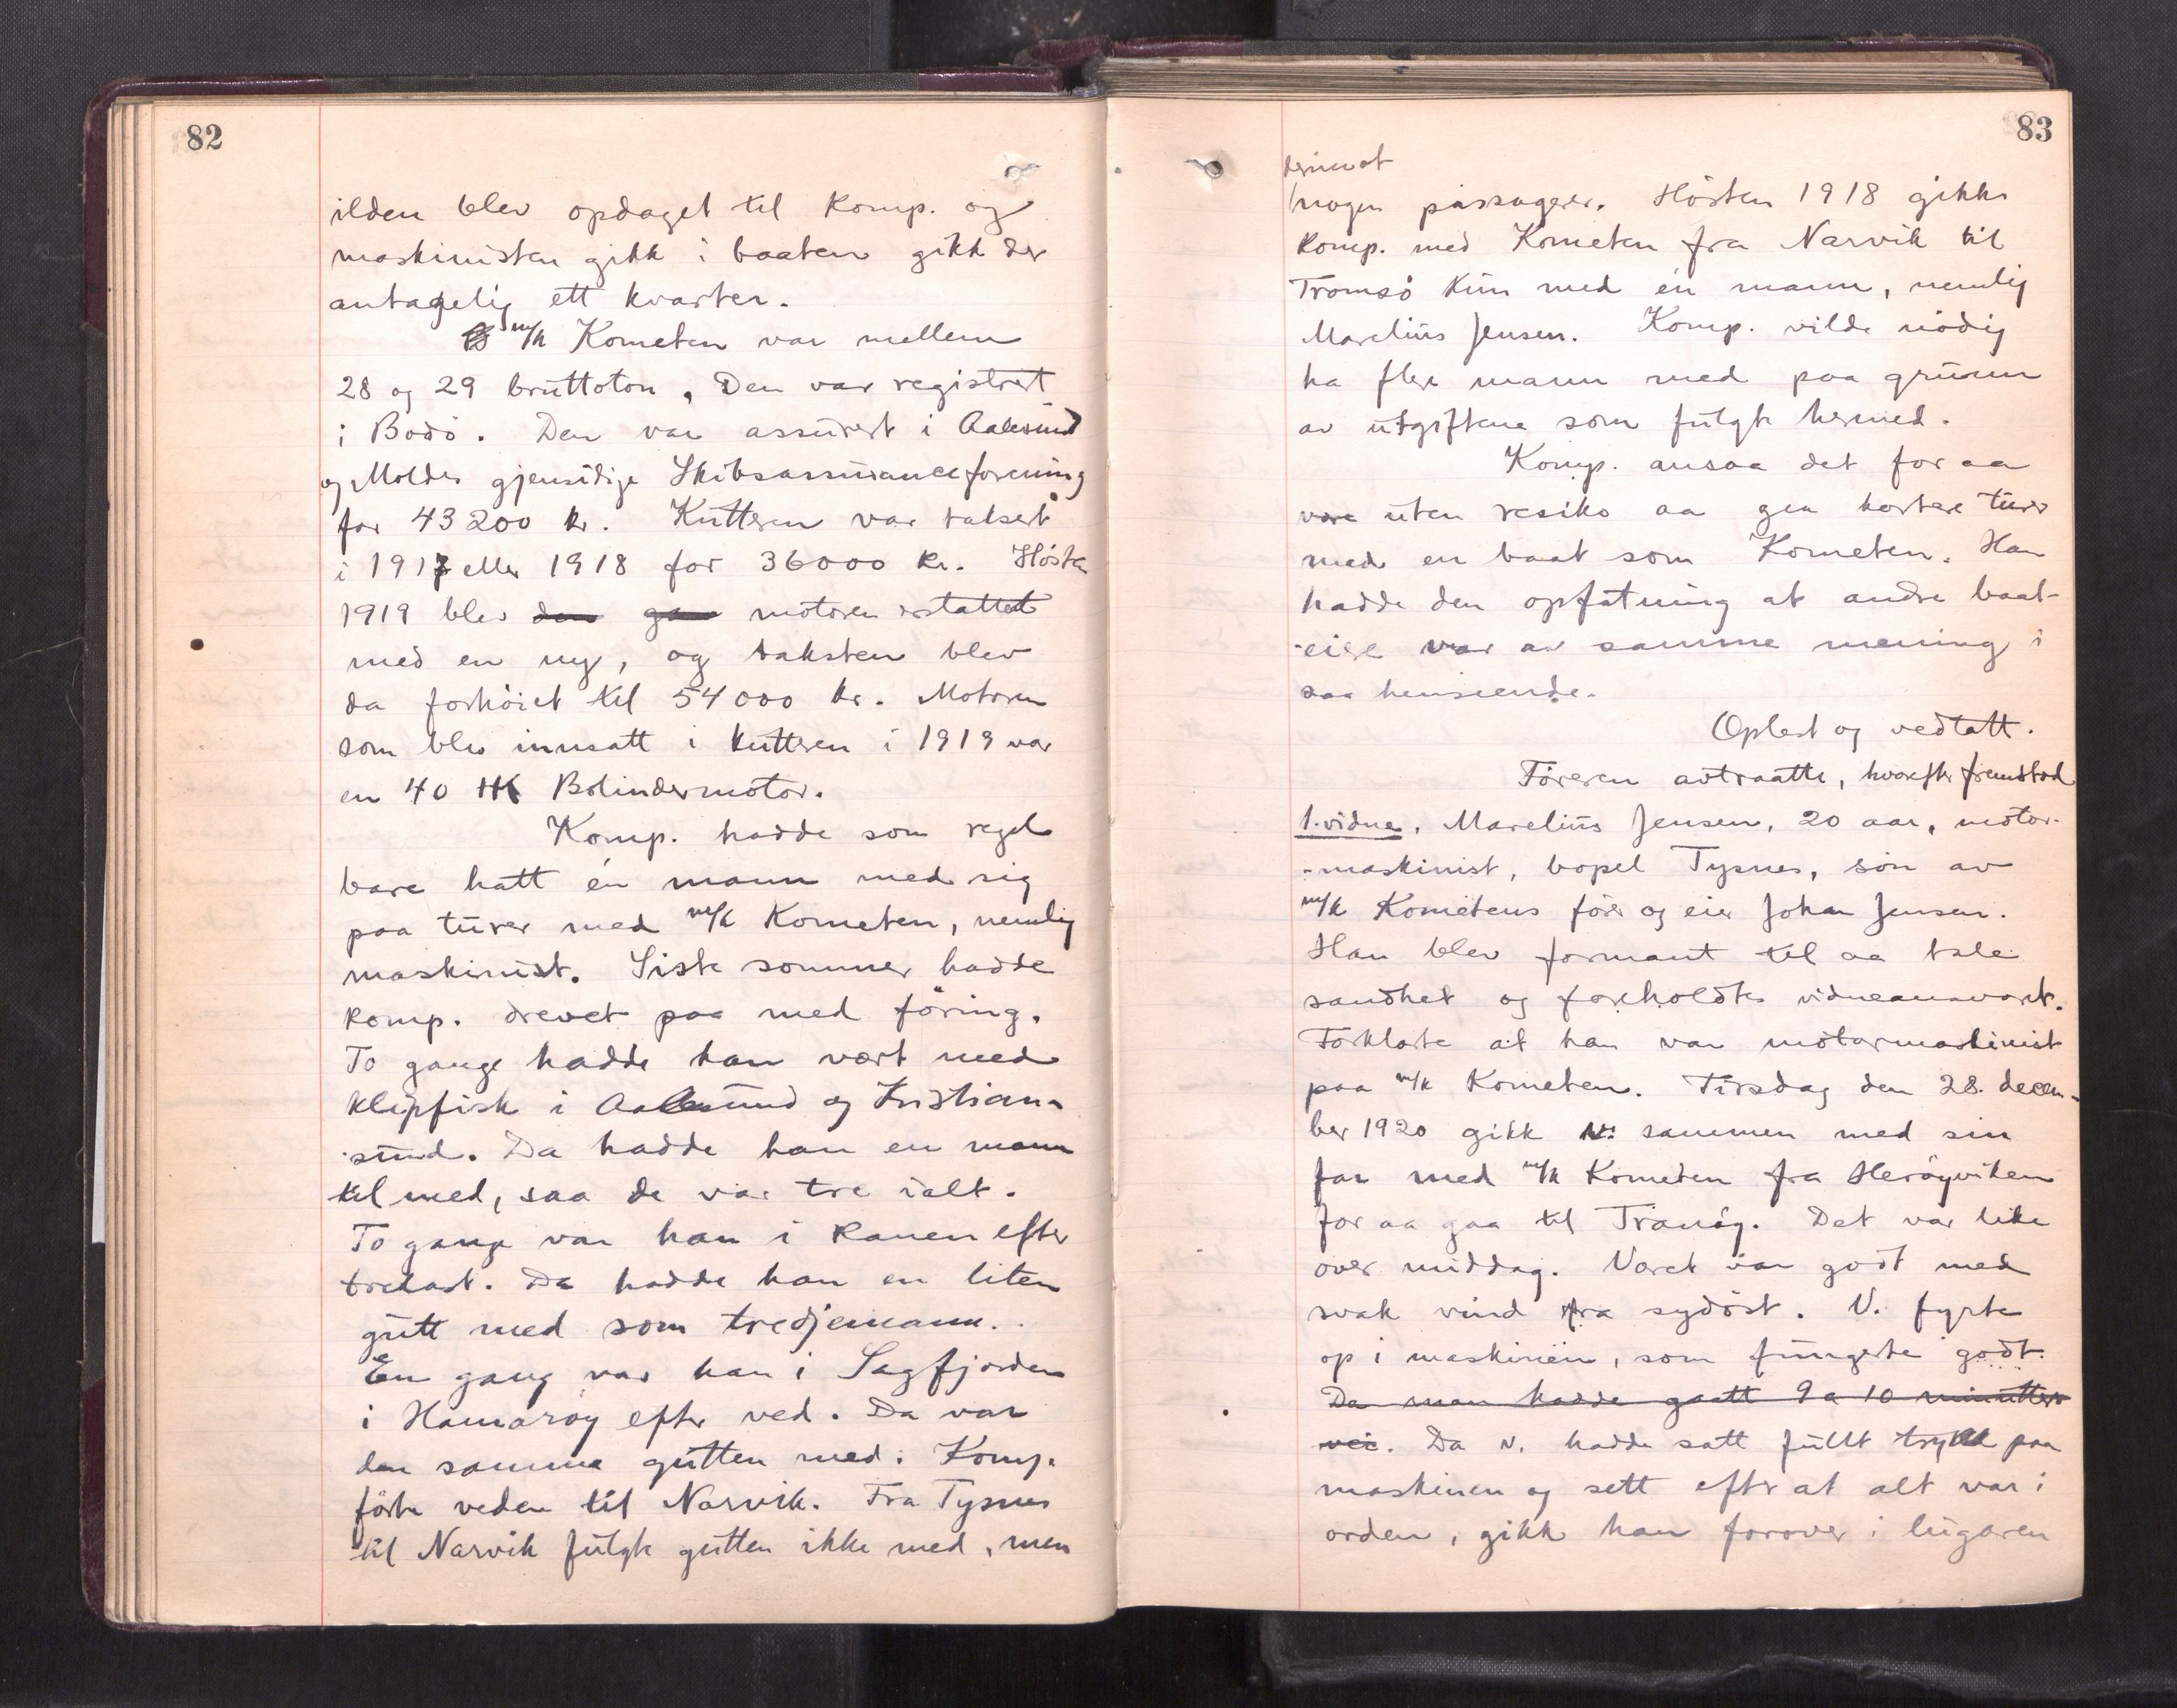 82
ilden blev opdaget til komp. og
maskinisten gikk i baaten gikk der
antagelig ett kvarter.
m/k Kometen var mellem
28 og 29 bruttoton. Den var registrert
i Bodö. Den var assurert i Aalesund
og Moldes gjensidige Skibsassuranceforening
for 43200 kr. Kutteren var taksert
i 1917 eller 1918 for 36000 kr. Hösten
1919 blev den motoren erstattet
med en ny, og taksten blev
da forhöiet til 54000 kr. Motoren
som blev innsatt i kutteren i 1919 var
en 40 HK Bolindermotor.
Komp. hadde som regel
bare hatt én mann med sig
paa turer med m/k Kometen, nemlig
maskinist. Siste sommer hadde
komp. drevet paa med föring.
To gange hadde han vært med
klipfisk i Aalesund og Kristian-
sund. Da hadde han en mann
til med, saa de var tre ialt.
To gange var han i Ranen efter
trelast. Da hadde han en liten
gutt med som tredjemann.
En gang var han i Sagfjorden
i Hamaröy efter ved. Da var
den samme gutten med. Komp.
förte veden til Narvik. Fra Tysnes
til Narvik fulgte gutten ikke med, men
83
derimot
nogen passagerer. Hösten 1918 gikk
komp. med Kometen fra Narvik til
Tromsö kun med én mann, nemlig
Marelius Jensen. Komp. vilde nödig
ha flere mann med paa grunn
av utgiftene som fulgte hermed.
Komp. ansaa det for aa
være uten resiko aa gaa kortere turer
med en baat som Kometen. Han
hadde den opfatning at andre baat-
eiere var av samme mening i
saa henseende.
Oplest og vedtatt.
Föreren avtraatte, hvorefter fremstod
1. vidne, Marelius Jensen, 20 aar, motor-
maskinist, bopel Tysnes, sön av
m/k Kometens förer og eier Johan Jensen.
Han blev formant til aa tale
sandhet og foreholdtes vidneansvaret.
Forklarte at han var motormaskinist
paa m/k Kometen. Tirsdag den 28. decem-
ber 1920 gikk v. sammen med sin
far med m/k Kometen fra Heröyviken
for aa gaa til Tranöy. Det var like
over middag. Været var godt med
svak vind fra sydöst. V. fyrte
op i maskinen, som fungerte godt.
Da man hadde gaatt 9 a 10 minutters
vei. Da v. hadde satt fullt trykk paa
maskinen og sett efter at alt var i
orden, gikk han forover i lugaren